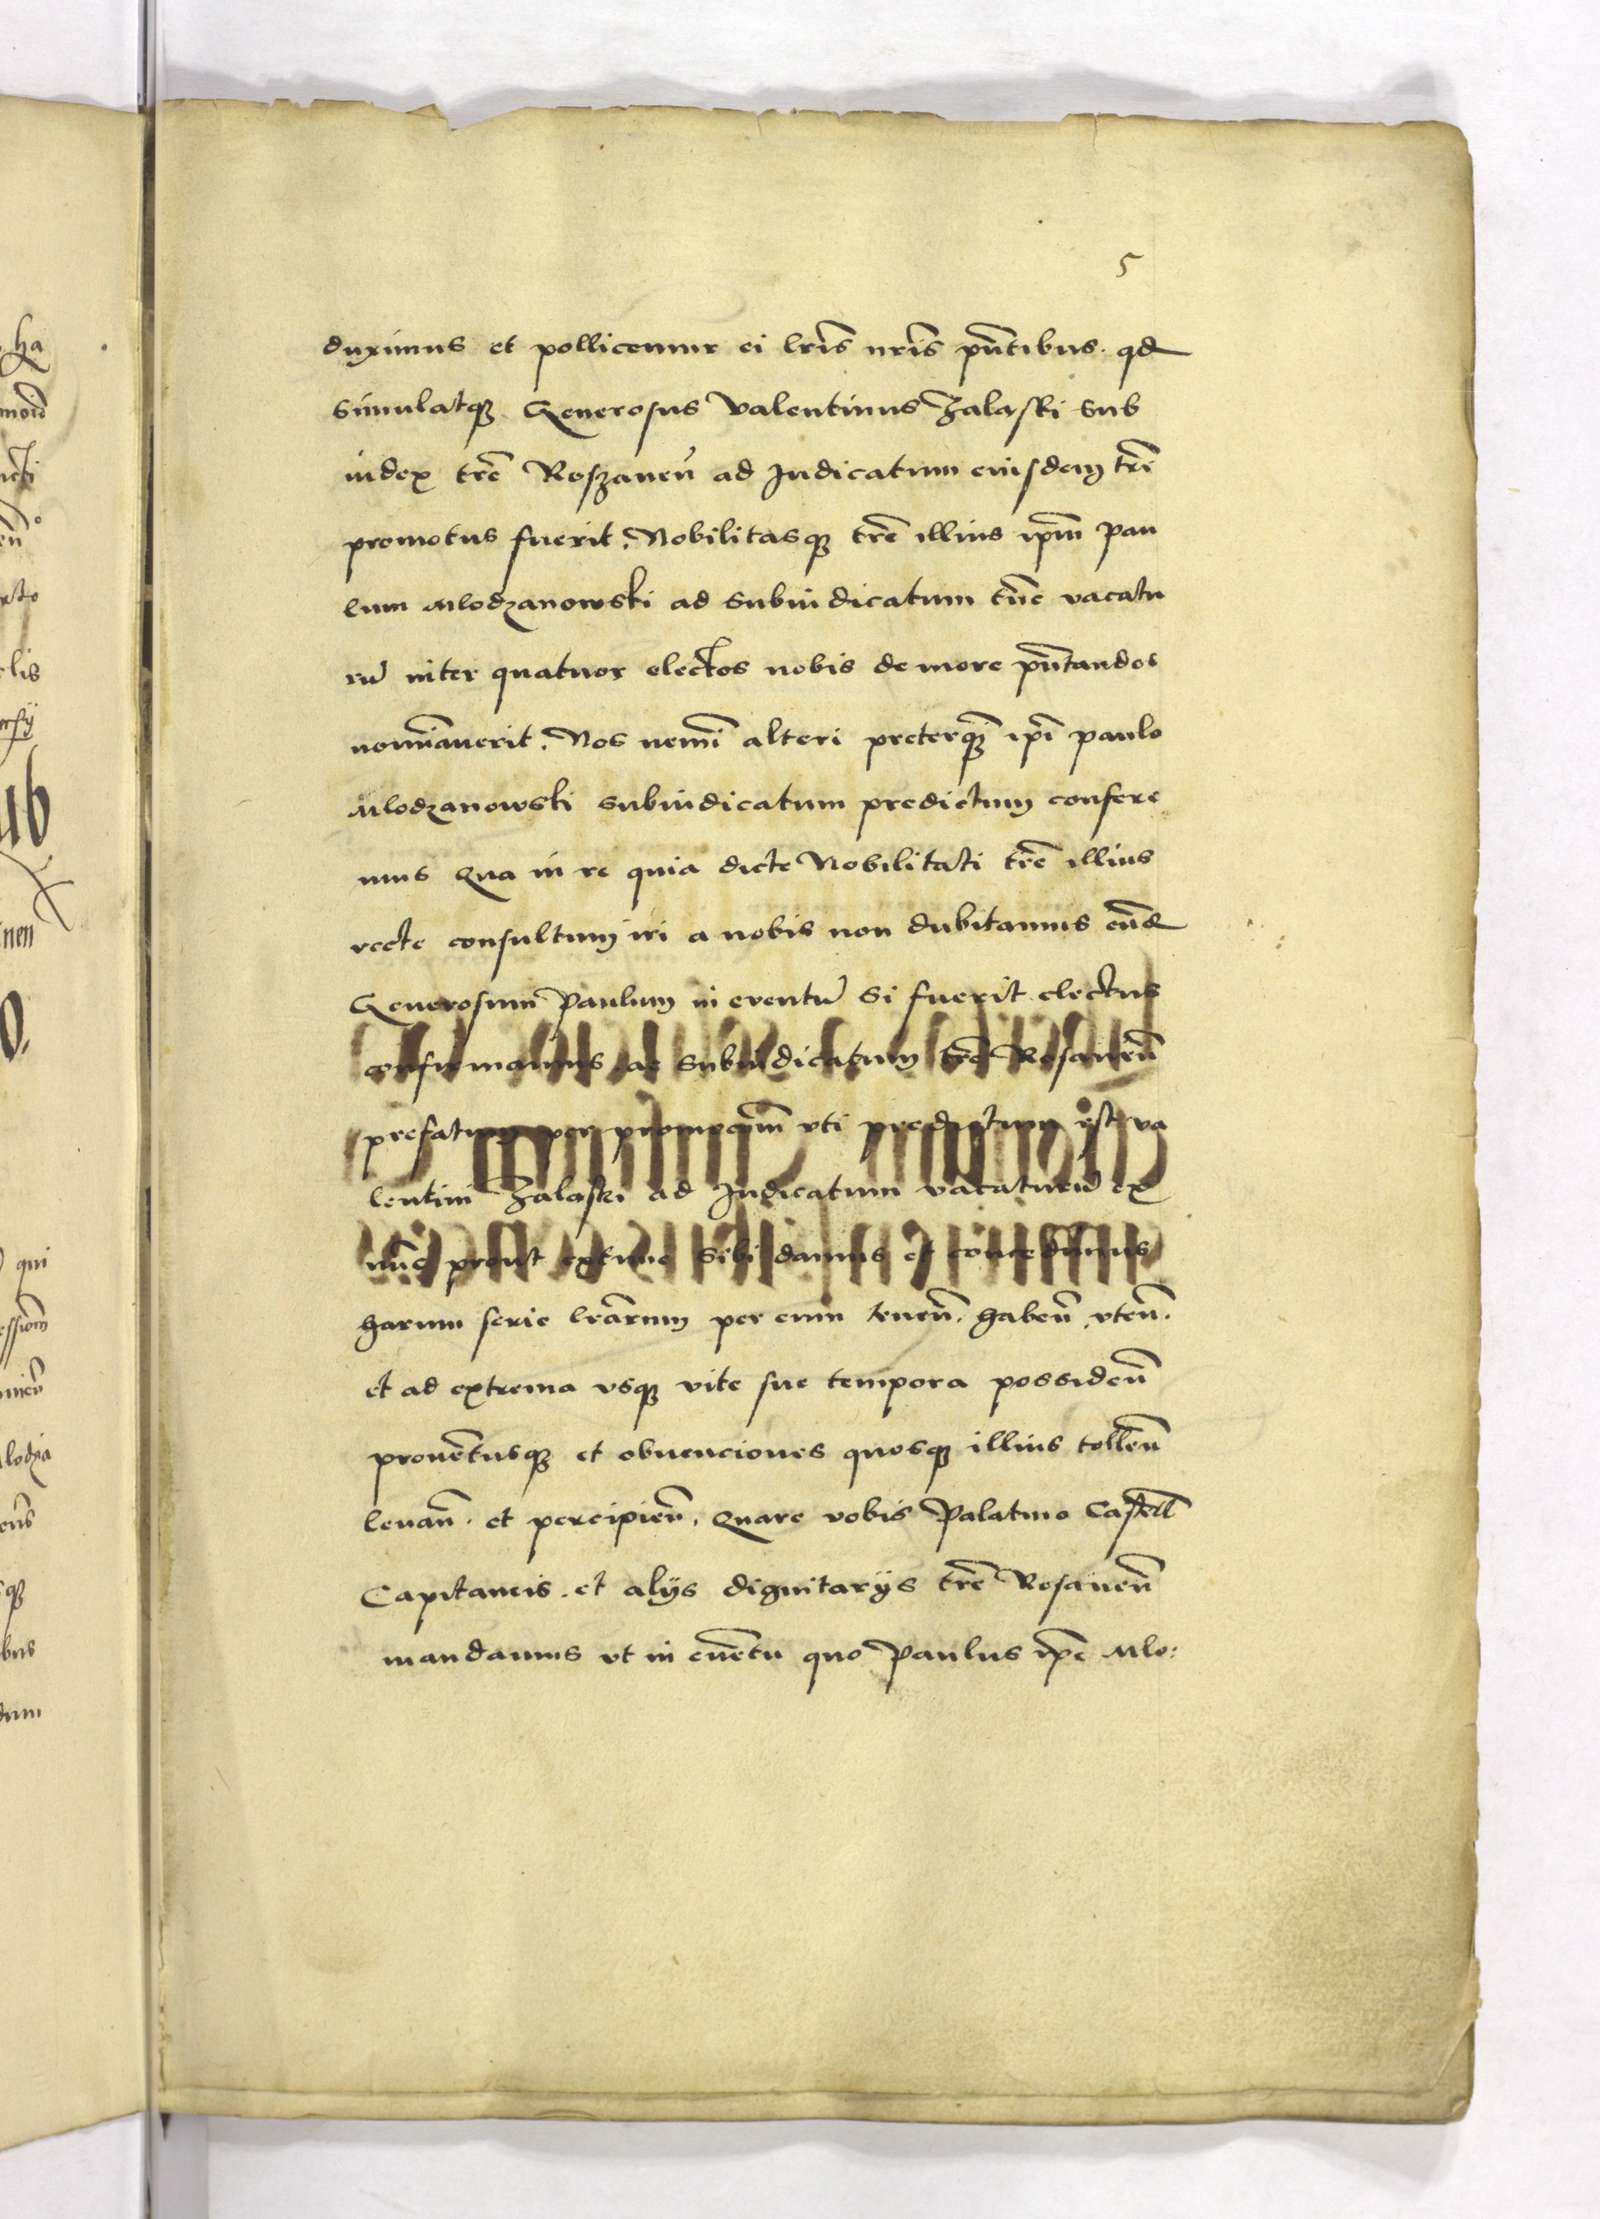 5
duximus et pollicemur ei lr̄is nr̄is pn̄tibus. qd
simulatq3 Generosus Valentinus Zalaski sub
iudex tr̄e Roszanen̄ ad Iudicatum eiusdem tr̄e
promotus fuerit, Nobilitasq3 tr̄e illius ip̄m Pau
lum Mlodzanowski ad Subiudicatum tūc vacatu
rū inter quatuor electos nobis de more pn̄tandos
nomīauerit. Nos nemī alteri preterq̄3 ip̄i paulo
Mlodzanowski subiudicatum predictum confere
mus Qua in re quia dicte Nobilitati tr̄e illius
recte consultum iri a nobis non dubitamus eūd
Generosum Paulum in euentū si fuerit electus
confirmamus ac subiudicatum tr̄e Rosanen̄
prefatum per promocōīm vti predictum est va
lentini Zalaski ad Iudicatum vacaturū ex
nūc prout extunc sibi damus et concedimus
harum serie lr̄arum per eum tenen̄. haben̄. vten̄.
et ad extrema vsq3 vite sue tempora possiden̄
prouētusq3 et obuenciones quosq3 illius tollen̄
leuan̄. et percipien̄. Quare vobis Palatino Castell̄
Capitaneis. et alijs dignitarijs tr̄e Rosanen̄
mandamus vt in euētu quo Paulus ip̄e Mlo: